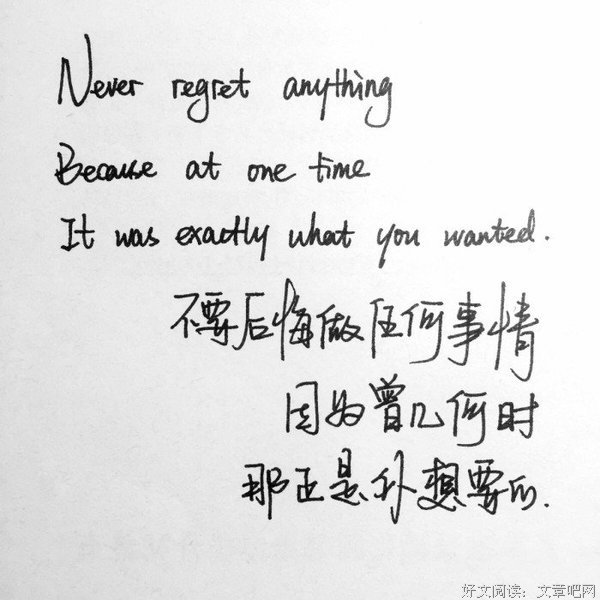 Never regret anything
Because at one time
It was exactly what you wanted.
不要后悔做任何事情
因为曾几何时
那正是你想要的.
好文阅读：文章吧网